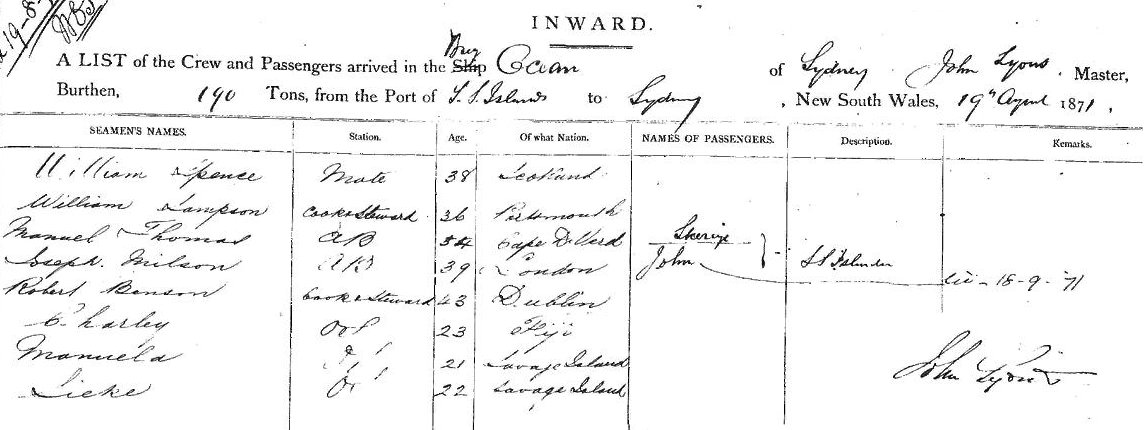 19-8-
INWARD.
Brig
A LIST of the Crew and Passengers arrived in the Ship Ocean of Sydney John Lyons, Master,
Burthen, 190 Tons, from the Port of S. S. Islands to Sydney, New South Wales, 19th August 1871.
SEAMEN'S NAMES. Station. Age. Of what Nation. NAMES OF PASSENGERS. Description. Remarks.
William Spence Mate 38 Scotland
William Sampson Cook & Steward 36 Portsmouth
Manuel Thomas AB 34 Cape D Verd
Joseph. Milson AB 39 London John S S Islander 18-9-71
Robert Benson Cook & Steward 43 Dublin
Charley OS 23 Fiji
Manuela 21 Savage Island John Lyons
Sicke 22 Savage Island